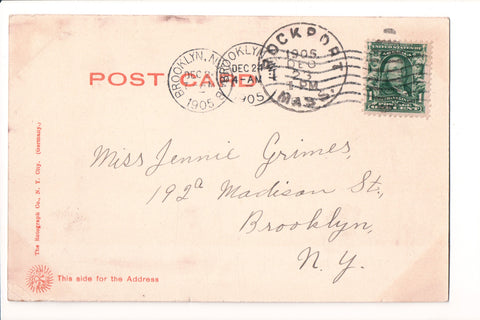 POST CARD
BROOKLYN, N.Y.
DEC 2
1905
BROOKLYN
DEC 24
4-AM
1905
ROCKPORT
1905
DEC
23
4 PM
MASS.
Miss Jennie Grimes,
192a Madison St.,
Brooklyn,
N.Y.
The Rotograph Co., N. Y. City. (Germany.)
This side for the Address